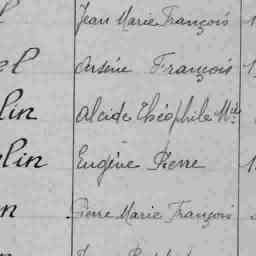 Jean Marie François
el Arsène François
lin Alcide Théophile Mie
lin Eugène Pierre
n Pierre Marie François